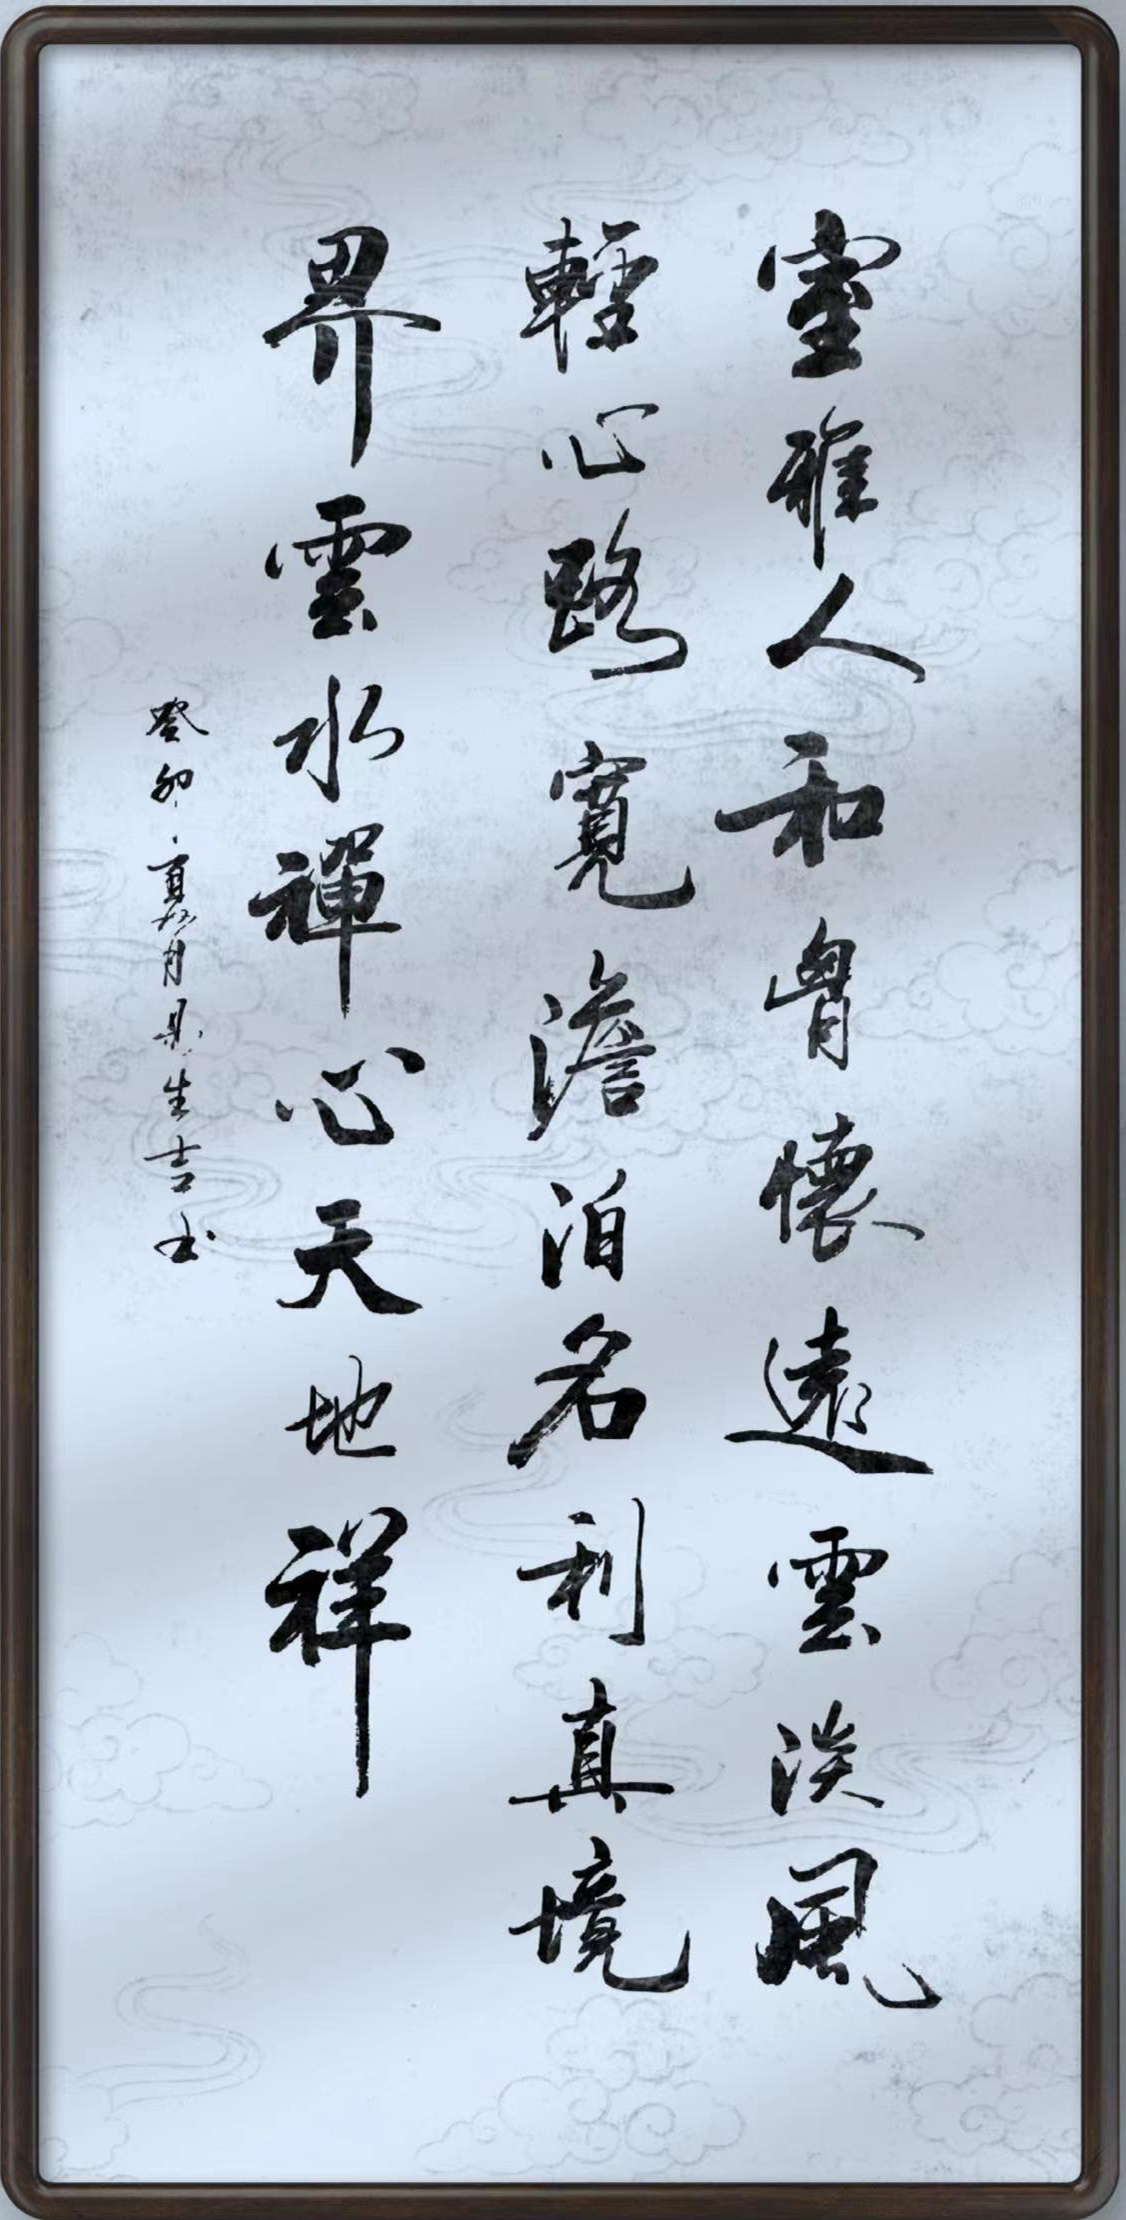 室雅人和胷懷遠雲淡風
輕心路寬澹泊名利真境
界雲水禪心天地祥
癸卯夏月生吉书